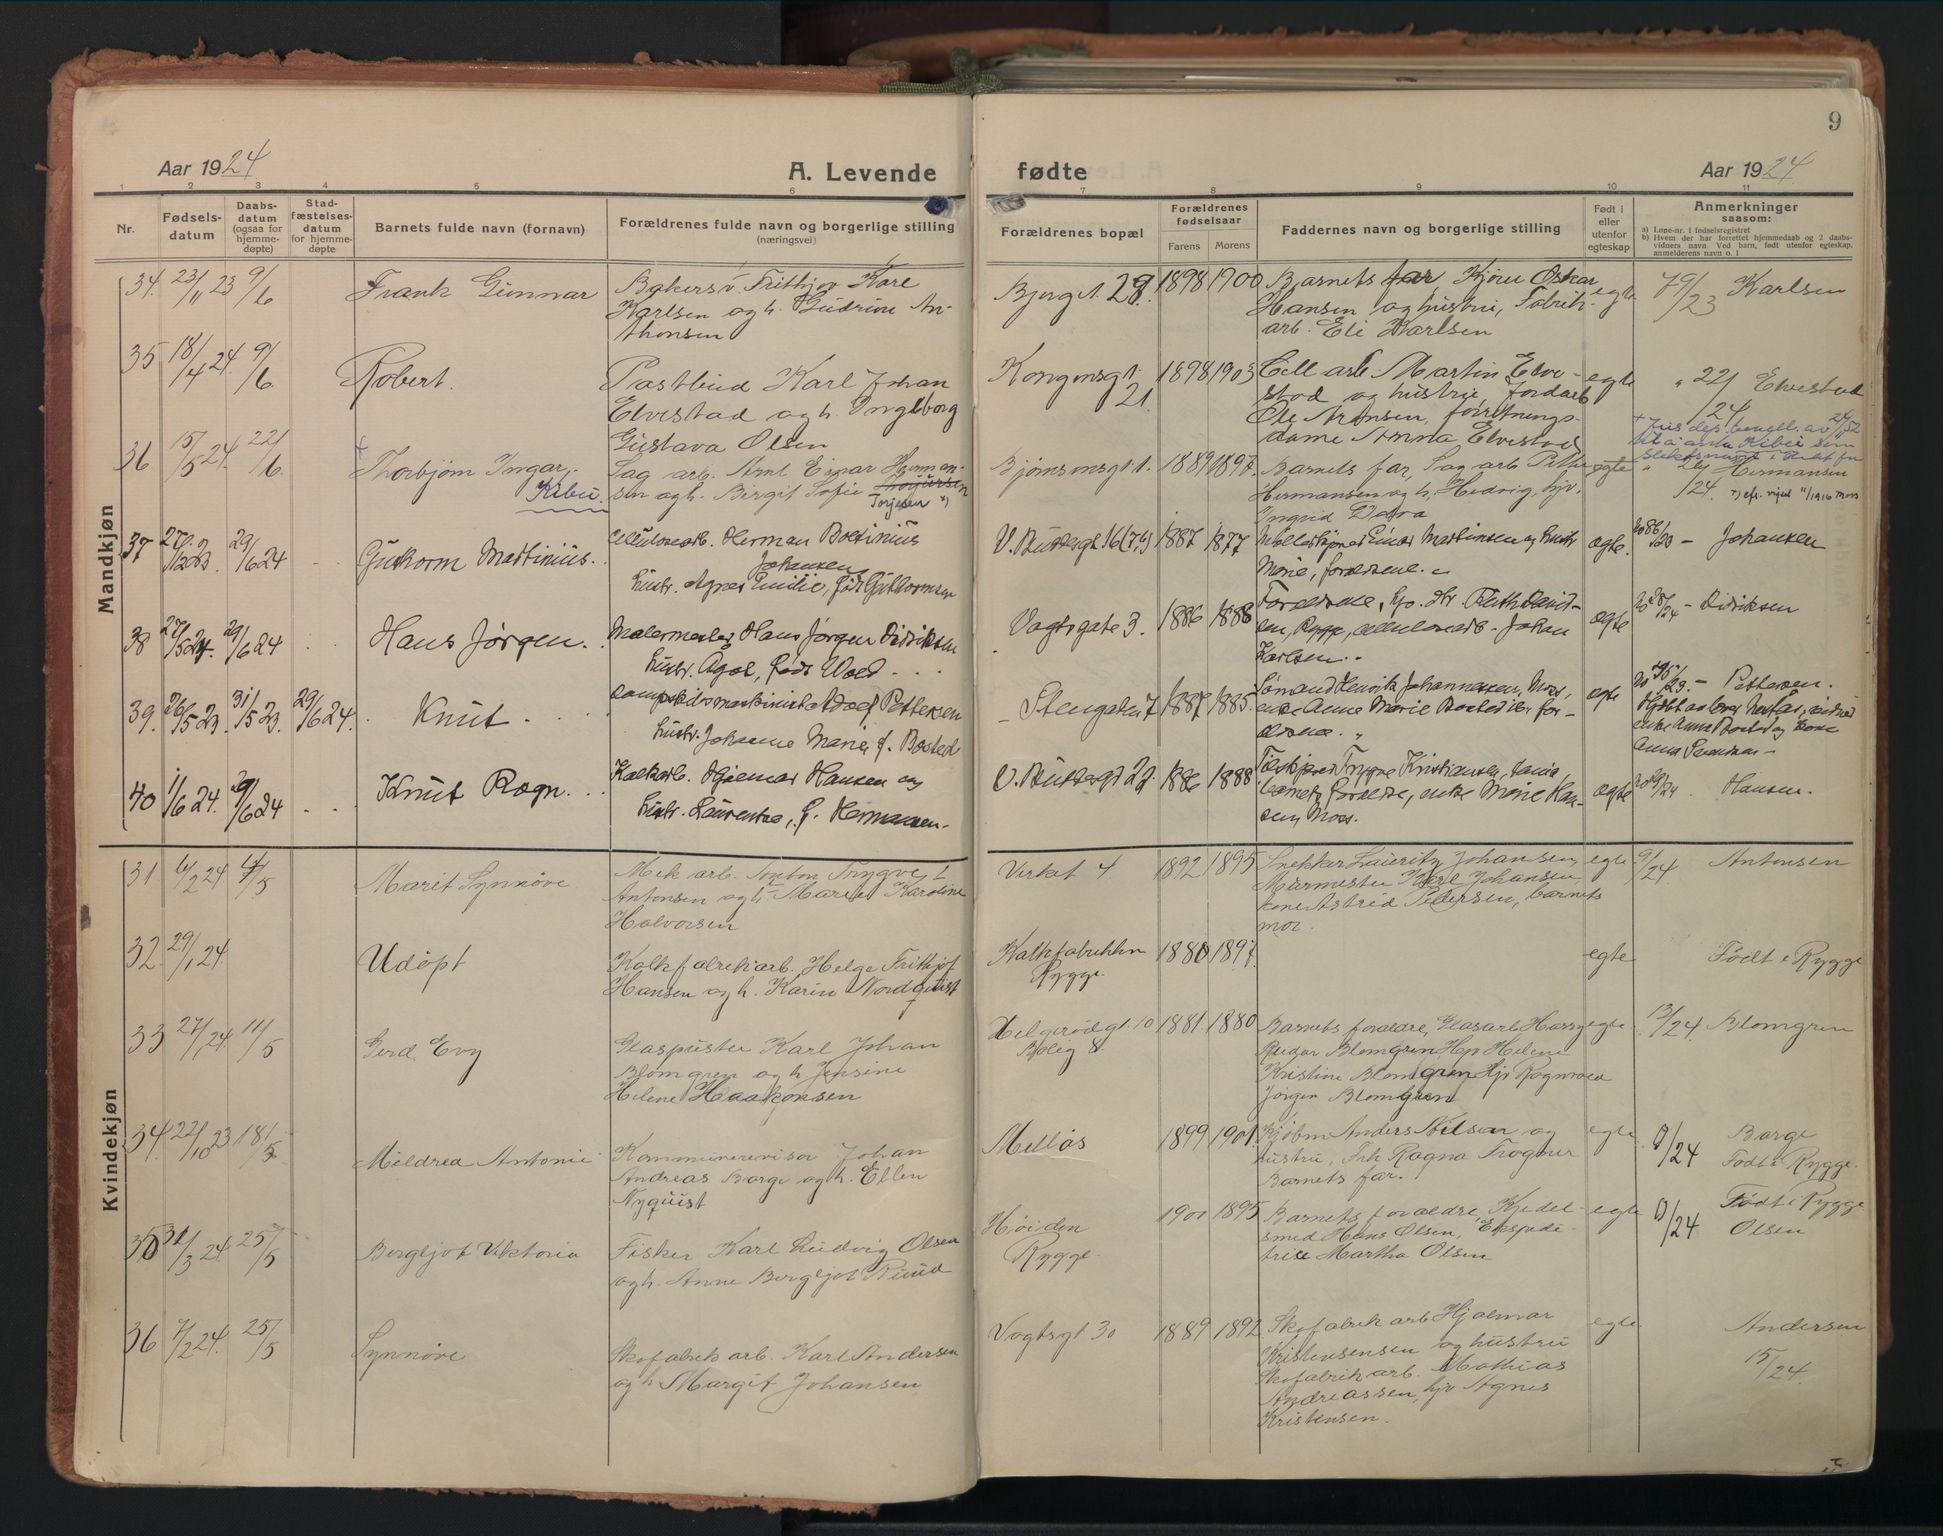 9
Aar 1924
A. Levende
fødte
Aar 1924
1 2 3 4 5 6 7 8 9 10 11
Nr.
Fødsels-
datum
Daabs-
datum
(ogsaa for
hjemme-
døpte)
Stad-
fæstelses-
datum
for hjemme-
døpte
Barnets fulde navn (fornavn)
Forældrenes fulde navn og borgerlige stilling
(næringsvei)
Forældrenes bopæl
Forældrenes
fødselsaar
Farens Morens
Faddernes navn og borgerlige stilling
Født i
eller
utenfor
egteskap
Anmerkninger
saasom:
a) Løpe-nr. i fødselsregistret
b) Hvem der har forrettet hjemmedaab og 2 daabs-
vidners navn. Ved barn, født utenfor egteskap,
anmelderens navn o. l
Mandkjøn
34. 23/11 23 9/6 Frank Gunnar
Bakersv. Frithjov Karl
Karlsen og h. Gudrun An-
thonsen
Bjergt. 28. 1898 1900
Barnets far Kjøru Oskar
Hansen og hustru, Fabrik-
arb. Eli Karlsen
egte 79/23 Karlsen
35 18/4 24. 9/6 Robert.
Postbud Karl Johan
Elvestad og h. Ingeborg
Gustava Olsen
Kongensgt. 21. 1898 1903
Cell arb Martin Elve-
stad og hustru, Jordarb
Ole Aronsen, forretnings-
dame Anna Elvestad
egte " 22/24 Elvestad
36 15/5 24. 22/6 Thorbjørn Ingar,
Kibu.
Sag arb. Arnt Einar Herman-
sen og h. Birgit Sofie
Torjesen x)
Bjørnsonsgt. 1. 1889 1897.
Barnets far, Sag arb Petter
Hermansen og h, Hedvig, hjv.
Ingrid
egte
/24. Hermansen
37 27/12 23 29/6 24 Guthorm Martinius.
Cellulosearb. Herman Boltinius
Johansen
hustr. Agnes Emilie, født Guttormsen
V. Bussegt 16 (7,6) 1887 1877
Einar Martinsen og hustr
Marie, forældrene.
egte. No 86/23 - Johansen
38 27/5 24. 29/6 24 Hans Jørgen.
Malermester Hans Jørgen Didriksen
hustr. Agot, født Wold
Vogtsgate 3. 1886 1888
Forældrene, hr. David-
sen, Rygge, cellulosearb. Johan
Karlsen.
egte No 28/24 - Didriksen
39. 26/5 23. 31/5 23. 29/6 24. Knut
Dampskibsmaskinist Adolf Pettersen
hustr. Johanne Marie, f. Bosted
Stengaten 7 1887 1885.
Sømand Henrik Johannessen, Moss,
enke Anne Marie Bosted for-
ældrene.
egte No 95/23. - Pettersen.
40 1/6 24. 29/6 24 Knut Ragn.
Kalkarb. Hjelmar Hansen og
hustr. Laurentse, f. Hermansen.
V. Bussegt 22. 1886 1888
Trygve Kristiansen,
barnets forældre, enke Marie Han-
sen, Moss.
egte Hansen.
Kvindekjøn
31 6/2 24 4/5 Marit Synnøve
Mek arb. Anton Trygve
Antonsen og h. Marie Karoline
Halvorsen
Verket 4. 1892 1895
Snekker Lauritz Johansen,
Murmester Karl Johansen,
kone Astrid Pedersen, barnets
mor.
egte 9/24 Antonsen
32. 29/1 24. Udøpt
Kalkfabrikarb. Helge Frithjof
Hansen og h. Karin Nordquist
Kalkfabrikken
Rygge. 1880 1897.
egte Født i Rygge
33 27/1 24. 11/5 Gerd Evy
Glaspuster Karl Johan
Blomgren og h. Jensine
Helene Haakonsen
Helgerødgt. 10
Bolig 8. 1881 1880
Barnets forældre, Glasarb Harry
Reidar Blomgren, Hjv Helene
Kristine Blomgren, Hjv Ragnvald
Jørgen Blomgren
egte 13/24 Blomgren
34. 22/10 23 18/5 Mildred Antonie
Kommunerevisor Johan
Andreas Borge og h. Ellen
Nyquist
Melløs 1899 1901
Kjøbm Anders Nilsen og
hustru, Frk Ragna Trogner
Barnets far.
egte /24 Borge
Født i Rygge.
35 31/3 24. 25/5 Bergljot Viktoria
Fisker Karl Ludvig Olsen
og h. Anne Bergljot Ruud
Høiden
Rygge. 1901 1895
Barnets forældre, Kjedel-
smed Hans Olsen, Ekspedi-
trice Martha Olsen
egte /24 Født i Rygge
Olsen
36 7/2 24. 25/5 Synnøve
Skofabrik arb. Karl Andersen
og h. Margit Johansen
Vogtsgt 30 1889 1892
Skofabrik arb Hjalmar
Kristensensen og hustru
Skofabrik arb. Mathias
Andreassen, hjv Agnes
Kristensen.
egte. Andersen
15/24.